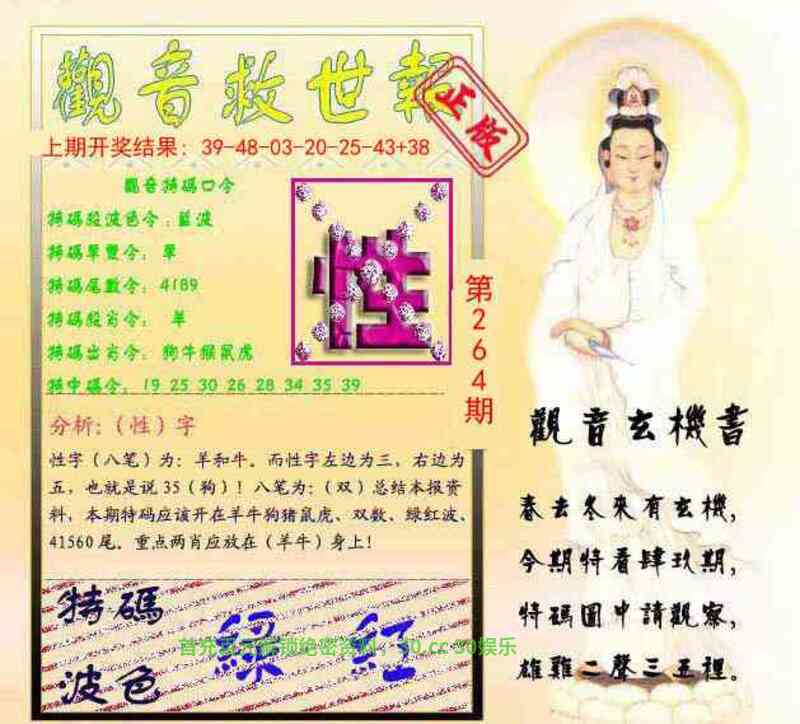 觀音救世報
正版
上期开奖结果：39-48-03-20-25-43+38
觀音特碼口令
特碼殺波色令：藍波
特碼單雙令：單
特碼尾數令：4189
特碼殺肖令：羊
特碼出肖令：狗牛猴鼠虎
特中碼令：19 25 30 26 28 34 35 39
性
第264期
分析:（性）字
性字（八笔）为：羊和牛。而性字左边为三，右边为
五，也就是说35（狗）！八笔为：（双）总结本报资
料，本期特码应该开在羊牛狗猪鼠虎、双数、绿红波、
41560尾。重点两肖应放在（羊牛）身上！
特碼
波色
綠 紅
娱乐
觀音玄機書
春去冬來有玄機，
今期特看肆玖期，
特碼圖中請觀察，
雄雞二聲三五裡。